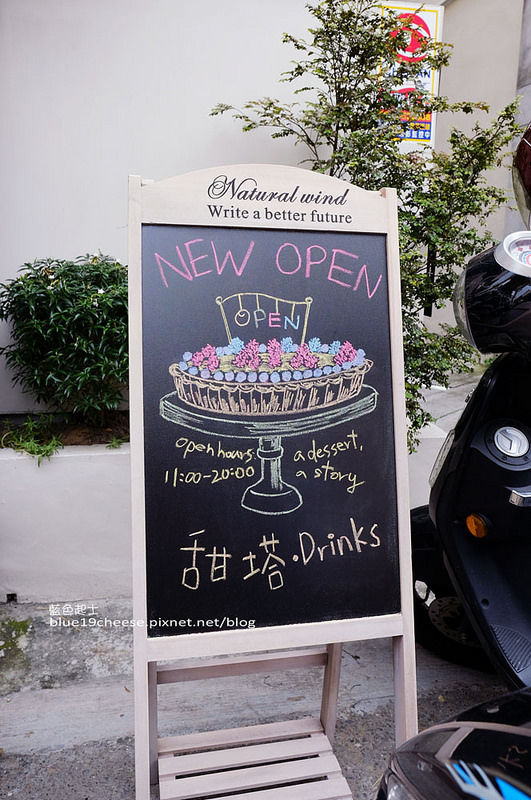 Natural wind
Write a better future
NEW OPEN
OPEN
open hours
11:00-20:00
a dessert,
a story
甜塔·Drinks
藍色起士
blue19cheese.pixnet.net/blog